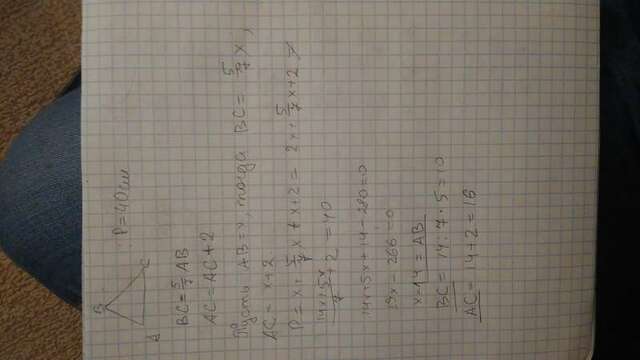 B
A C
P=40см
BC=5/7 AB
AC=AC+2
Пусть AB=x, тогда BC=5/7 x,
AC=x+2
P=x+5/7x+x+2=2x+5/7x+2
(14x+5x)/7+2=40
14x+5x+14-280=0
19x-266=0
x=14=AB
BC=14:7·5=10
AC=14+2=16